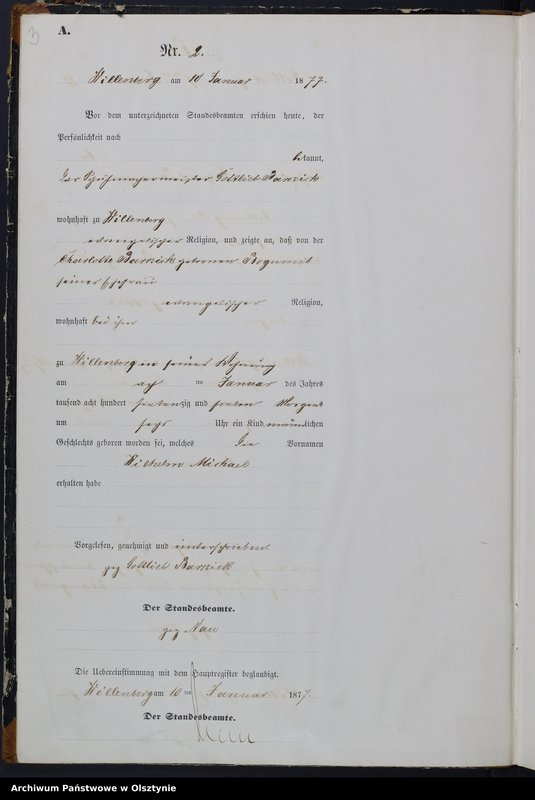 3
A.
Nr. 2.
Willenberg am 10 Januar 1877.
Vor dem unterzeichneten Standesbeamten erschien heute, der
Persönlichkeit nach
bekannt,
der Schuhmachermeister Gottlieb Barzick
wohnhaft zu Willenberg
evangelischer Religion, und zeigte an, daß von der
Charlotte Barzick geborenen Bogumil
seiner Ehefrau
evangelischer Religion,
wohnhaft bei ihm
zu Willenberg in seiner Wohnung
am ten Januar des Jahres
tausend acht hundert siebenzig und sieben Morgens
um sechs Uhr ein Kind männlichen
Geschlechts geboren worden sei, welches die Vornamen
Wilhelm Michael
erhalten habe
Vorgelesen, genehmigt und unterschrieben.
gez Gottlieb Barzick
Der Standesbeamte.
gez Nau
Die Uebereinstimmung mit dem Hauptregister beglaubigt.
Willenberg am 10 ten Januar 1877.
Der Standesbeamte.
Nau
Archiwum Państwowe w Olsztynie